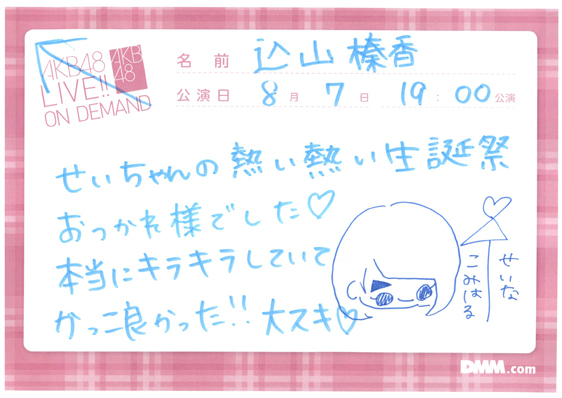 AKB48
LIVE!!
ON DEMAND
AKB
48
名前 込山榛香
公演日 8月 7日 19:00公演
せいちゃんの熱い熱い生誕祭
おっかれ様でした♡
本当にキラキラしていて
かっこ良かった!! 大スキ♡
せいな
こみはる
DMM.com